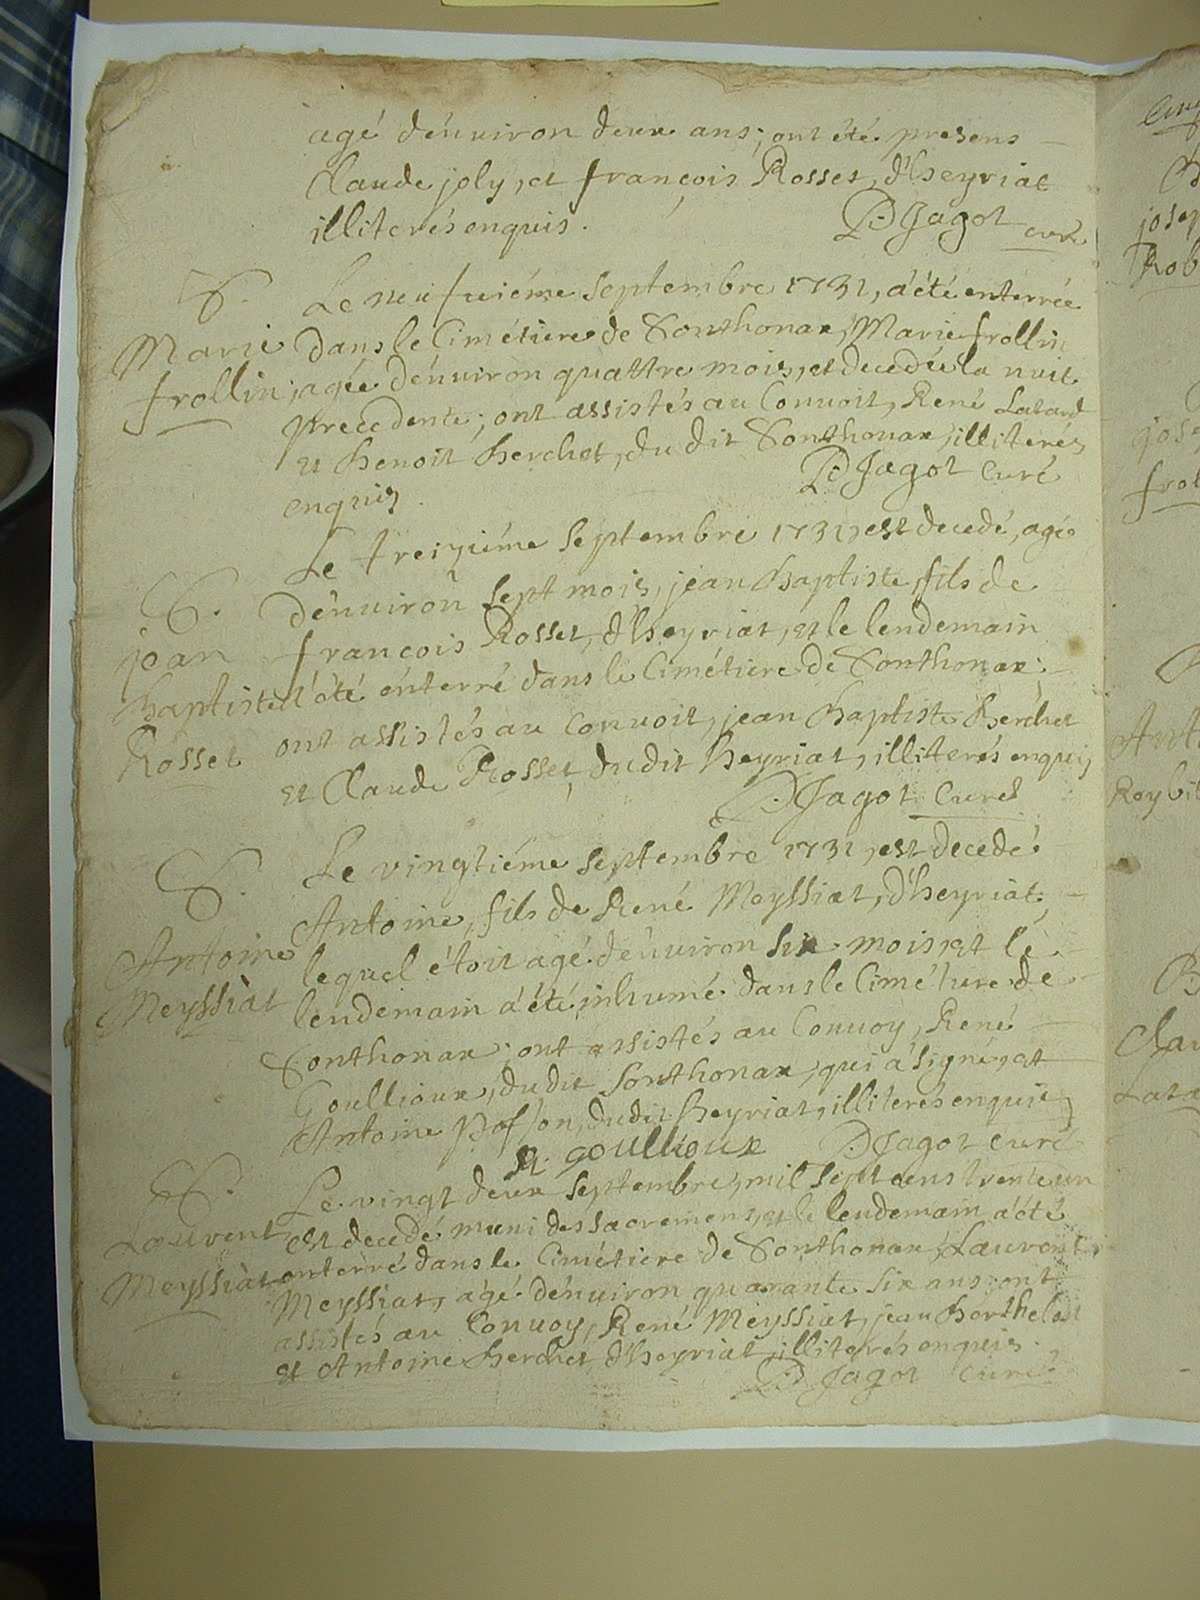 agé d'enuiron deux ans; ont été presens
Claude joly, et françois Rosset, d'heyriat
illiterés enquis.
D Jagot curé
S.
Marie
frollin
Le neufuiéme septembre 1731, a été enterrée
dans le Cimétiere de Sonthonax, Marie frollin
agée d'enuiron quattre mois, et decedée la nuit
precedente; ont assistés au Conuoit, René Latard
et Benoit Berchet, du dit Sonthonax, illiterés
enquis.
D Jagot Curé
S.
jean
Baptiste
Rosset
Le treiziéme septembre 1731, est decedé, agé
d'enuiron sept mois, jean Baptiste, fils de
françois Rosset, d'heyriat, et le lendemain
a été enterré dans le Cimétiere de Sonthonax:
ont assistés au Conuoit, jean Baptiste Berchet
et Claude Rosset, dudit heyriat, illiterés enquis
D Jagot Curé
S.
Antoine
Meyssiat
Le vingtiéme septembre 1731, est decedé
Antoine, fils de René Meyssiat, d'heyriat,
lequel étoit agé d'enuiron six mois, et le
lendemain a été inhumé dans le Cimétiere de
Sonthonax; ont assistés au Conuoy, René
Goullioux, du dit Sonthonax, qui a signé, et
Antoine dudit heyriat, illiterés enquis
R. goullioux D Jagot curé
S.
Laurent
Meyssiat
Le vingt deux septembre, mil sept cens trente un
est decedé muni des sacremens, et le lendemain a été
enterré dans le Cimétiere de Sonthonax, Laurent
Meyssiat, agé d'enuiron quarante six ans: ont
assistés au Conuoy, René Meyssiat, jean Berthelet
et Antoine Berchet, d'heyriat, illiterés enquis.
D Jagot Curé